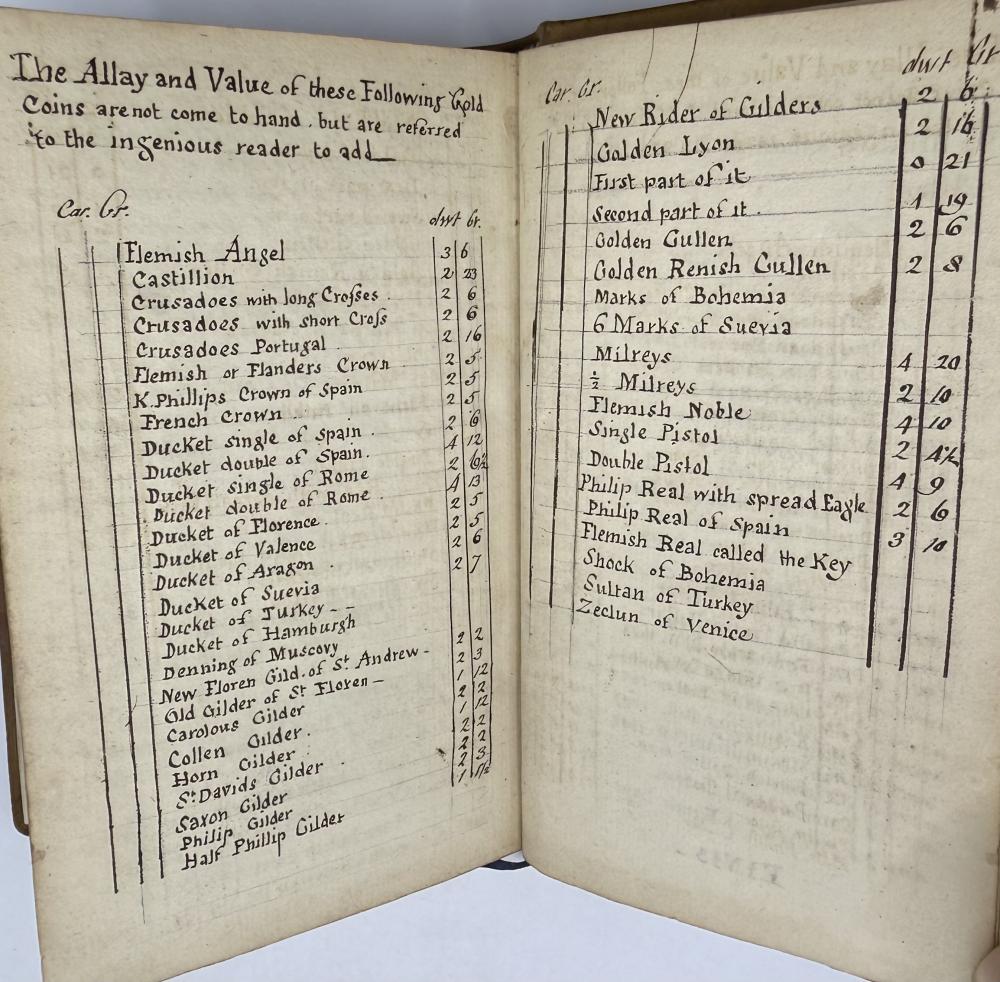 The Allay and Value of these Following Gold
Coins are not come to hand . but are referred
to the ingenious reader to add
Car. Gr. dwt Gr.
Flemish Angel 3 6
Castillion 2 23
Crusadoes with long Crosses . 2 6
Crusadoes with short Cross 2 6
Crusadoes Portugal . 2 16
Flemish or Flanders Crown 2 5
K. Phillips Crown of Spain 2 5
French Crown . 2 5
Ducket single of Spain . 2 6
Ducket double of Spain . 4 12
Ducket single of Rome 2 6½
Ducket double of Rome . 4 13
Ducket of Florence . 2 5
Ducket of Valence 2 5
Ducket of Aragon . 2 6
Ducket of Suevia 2 7
Ducket of Turkey - -
Ducket of Hamburgh
Denning of Muscovy
New Floren Gild. of St Andrew - 2 2
Old Gilder of St Floren - 2 3
Carolous Gilder 1 12
Collen Gilder . 2 2
Horn Gilder 1 12
St Davids Gilder . 2 2
Saxon Gilder 2 2
Philip Gilder 2 3
Half Phillip Gilder 1 1½
Car. Gr. dwt Gr
New Rider of Gilders 2 6
Golden Lyon 2 16
First part of it 0 21
Second part of it . 1 19
Golden Gullen 2 6
Golden Renish Gullen 2 8
Marks of Bohemia
6 Marks of Suevia
Milreys 4 20
½ Milreys 2 10
Flemish Noble 4 10
Single Pistol 2 4½
Double Pistol 4 9
Philip Real with spread Eagle 2 6
Philip Real of Spain 3 10
Flemish Real called the Key
Shock of Bohemia
Sultan of Turkey
Zeclun of Venice